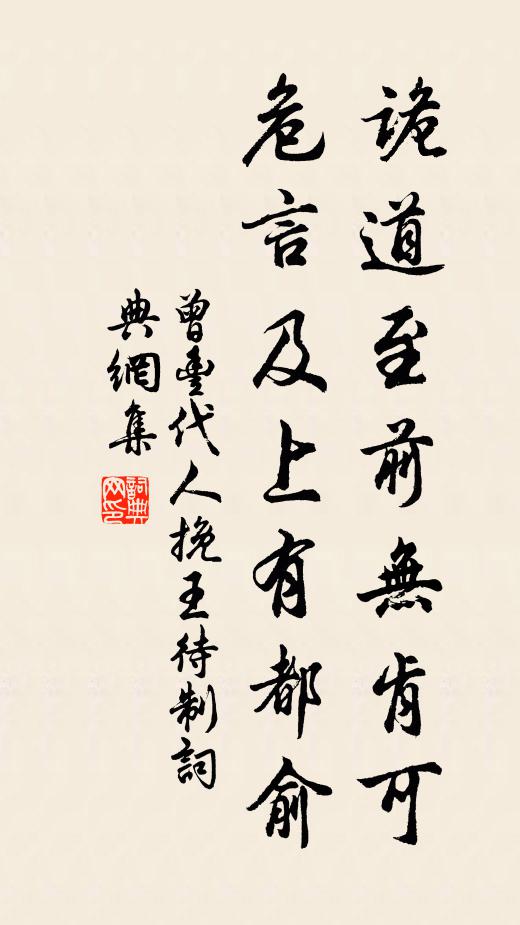 詭道至前無肯可
危言及上有都俞
曾豐代人挽王待制詞
典網集
詞典网印